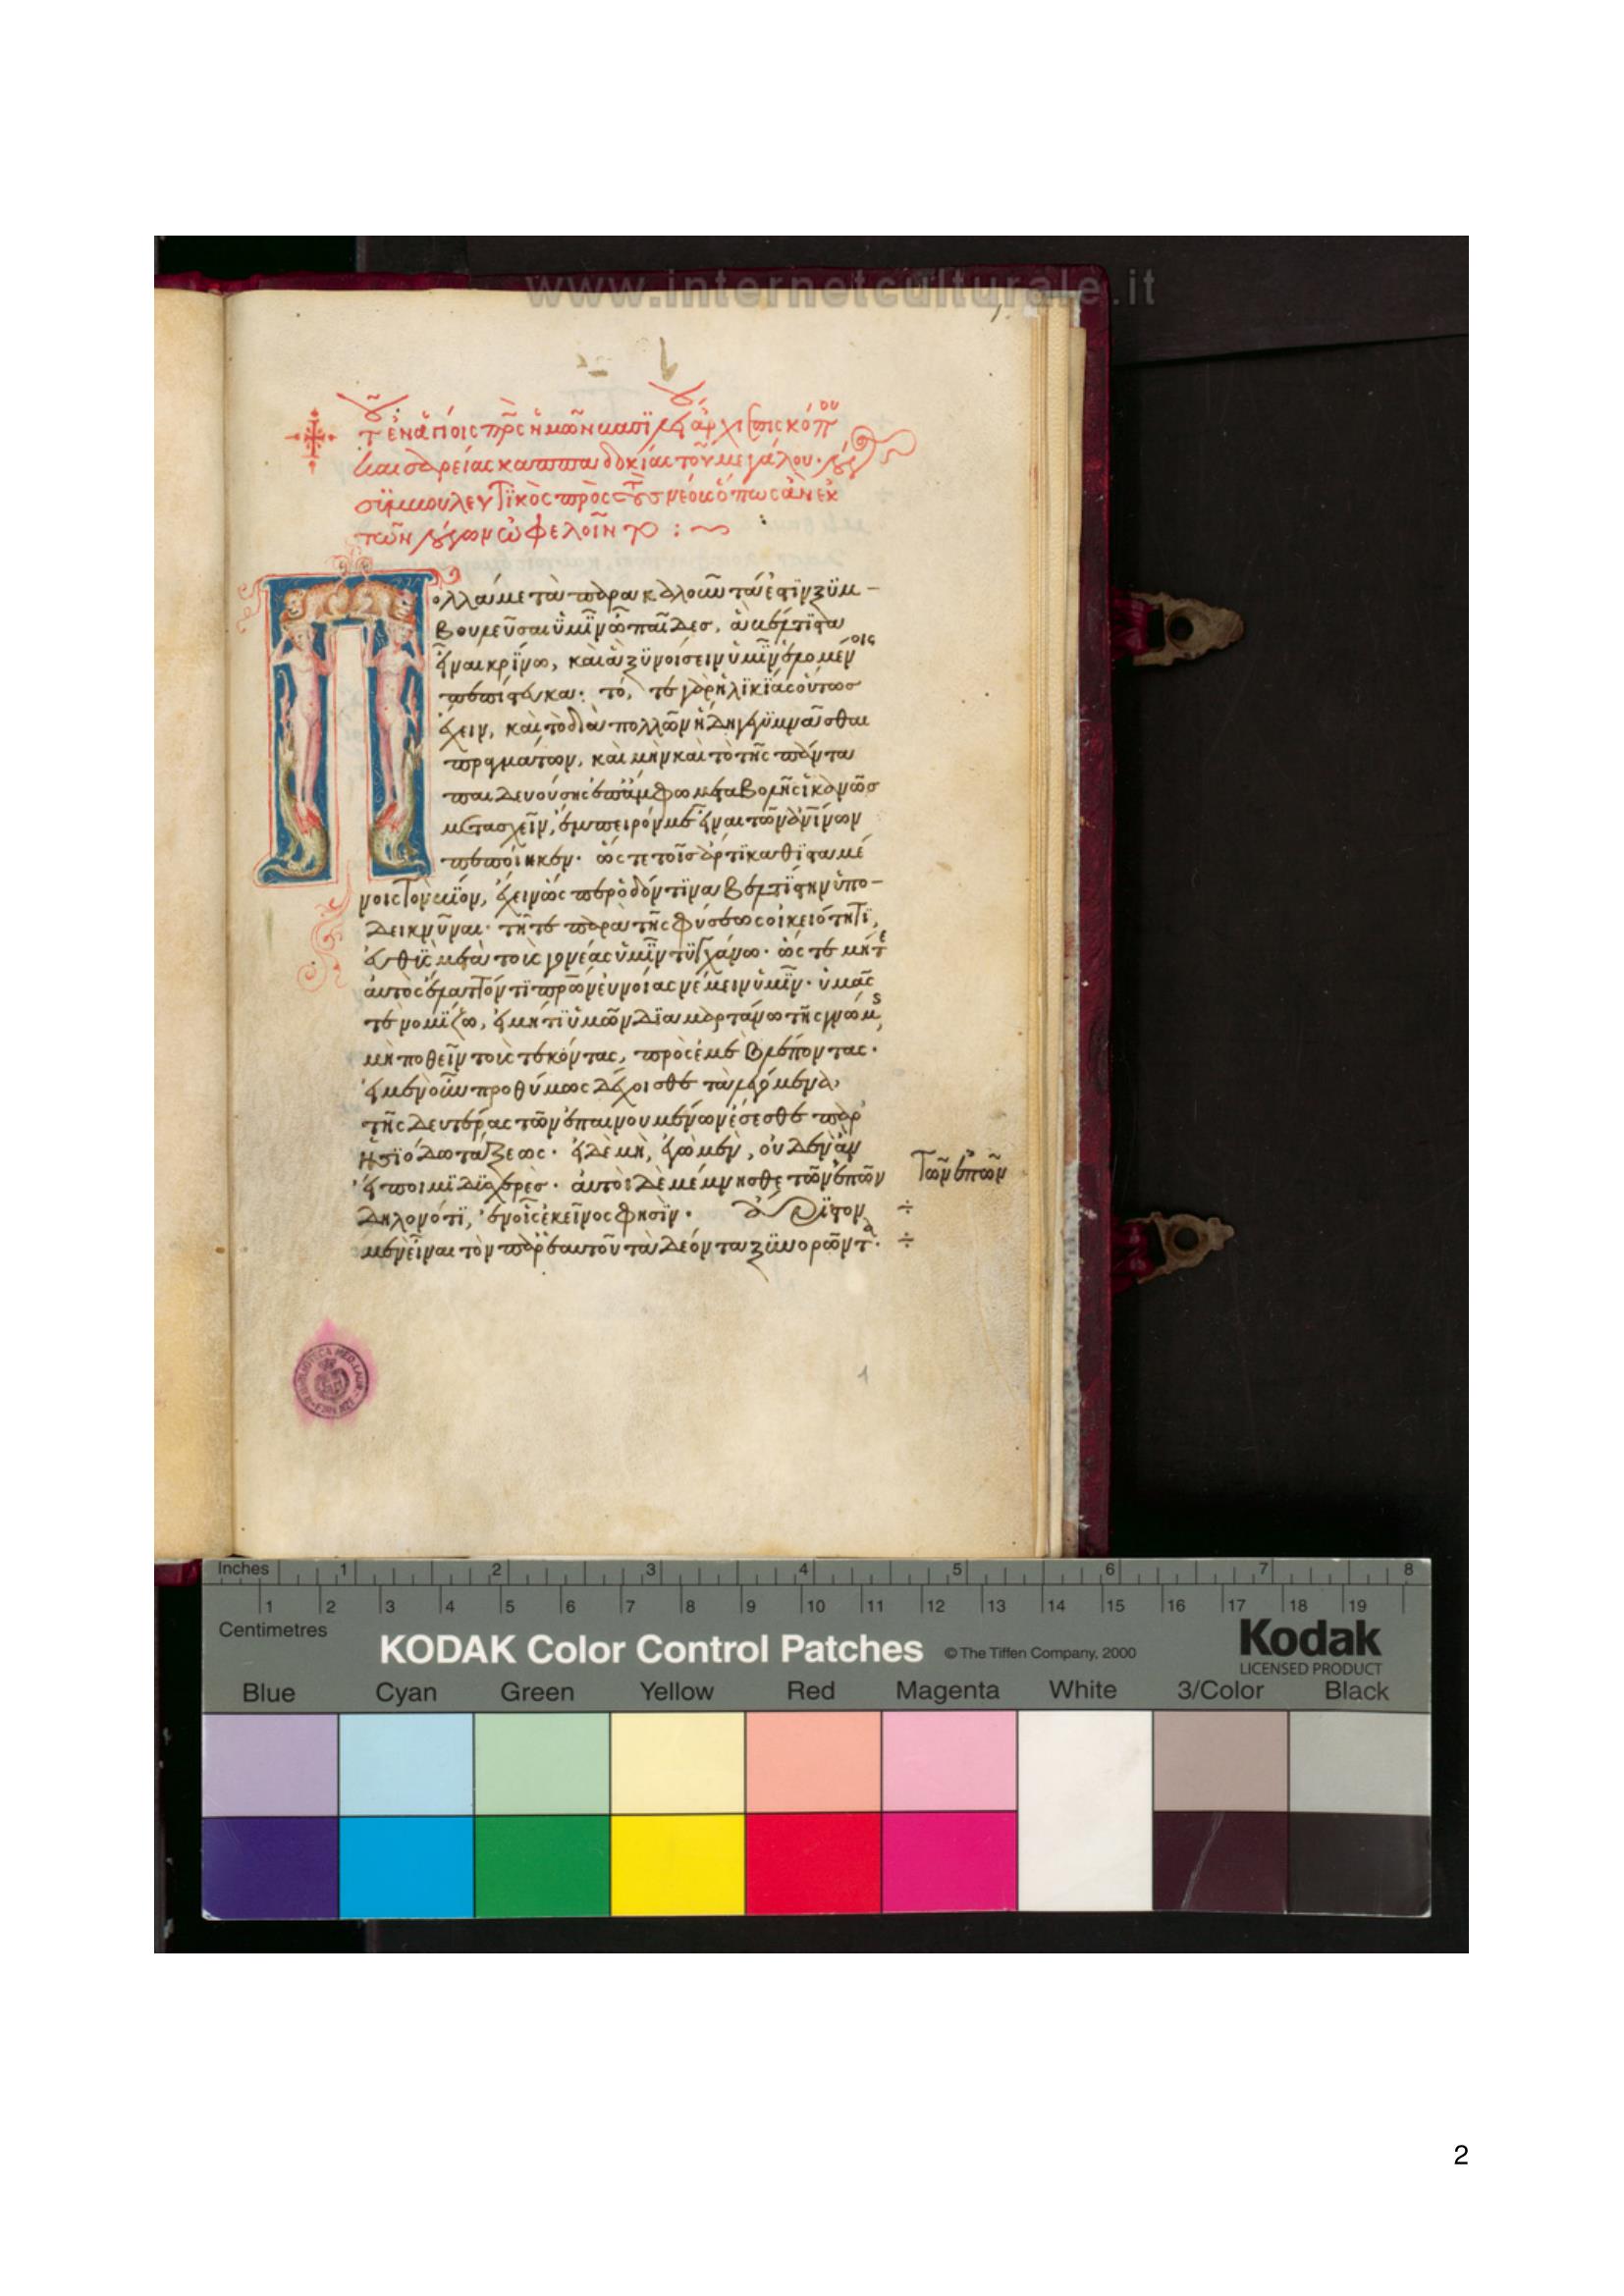 www.internetculturale.it
1.
τοῦ ἐν ἁγίοις πρς ἡμῶν βασιλείου ἀρχιεπισκόπου
καισαρείας καππαδοκίας τοῦ μεγάλου· λόγος
συμβουλευτικὸς πρὸς τοὺς νέους ὅπως ἂν ἐκ
τῶν λόγων ὠφελοῖντο :~
Πολλά με τὰ παρακαλοῦντά ἐστιν ξυμ-
βουλεῦσαι ὑμῖν ὦ παῖδες, ἃ βέλτιστα
εἶναι κρίνω, καὶ ἃ ξυνοίσειν ὑμῖν ἑλομένοις
πεπίστευκα· τό, τε γὰρ ἡλικίας οὕτως
ἔχειν, καὶ τὸ διὰ πολλῶν ἤδη γεγυμνᾶσθαι
πραγμάτων, καὶ μὴν καὶ τὸ τῆς πάντα
παιδευούσης ἐπ' ἄμφω μεταβολῆς ἱκανῶς
μετασχεῖν, ἔμπειρόν με εἶναι τῶν ἀνθρωπίνων
πεποίηκεν· ὥς τε τοῖς ἄρτι καθισταμέ
νοις τὸν βίον, ἔχειν ὡς περ ὁδόν τινα βελτίστην ὑπο-
δεικνῦναι· τῇ τε παρὰ τῆς φύσεως οἰκειότητι,
εὐθὺς μετὰ τοὺς γονέας ὑμῖν τυγχάνω· ὡς τε μήτε
αὐτὸς ἔλαττόν τι πρων εὐνοίας νέμειν ὑμῖν· ὑμᾶς
τε νομίζω, εἰ μή τι ὑμῶν διαμαρτάνω τῆς γνώμης,
μὴ ποθεῖν τοὺς τεκόντας, πρὸς ἐμὲ βλέποντας·
εἰ μὲν οὖν προθύμως δέχοισθε τὰ λεγόμενα,
τῆς δευτέρας τῶν ἐπαινουμένων ἔσεσθε παρ'
ἡσιόδω τάξεως· εἰ δὲ μὴ, ἐγὼ μὲν, οὐδὲν ἂν
εἴποιμι δυσχερές· αὐτοὶ δὲ μέμνησθε τῶν ἐπῶν
τῶν ἐπῶν
δηλονότι, ἐν οἷς ἐκεῖνος φησὶν· ἄριστον ÷
μὲν εἶναι τὸν παρ' ἑαυτοῦ τὰ δέοντα ξυνορῶντα· ÷
1
Inches 1 2 3 4 5 6 7 8
1 2 3 4 5 6 7 8 9 10 11 12 13 14 15 16 17 18 19
Centimetres
KODAK Color Control Patches © The Tiffen Company, 2000
Kodak
LICENSED PRODUCT
Blue Cyan Green Yellow Red Magenta White 3/Color Black
2